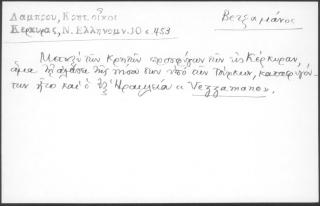 Λαμπρου, Κρητ. οἶκοι Βεζζαμάνος
Κερκυρας, Ν. Ἑλληνομν. 10 σ. 453
Μεταξὺ τῶν Κρητῶν προσφύγων τῶν εἰς Κέρκυραν,
ἅμα τῇ ἁλώσει τῆς νήσου των ὑπὸ τῶν Τούρκων, καταφυγόν-
των ἦτο καὶ ὁ ἐξ Ἡρακλείου « Vezzamano».